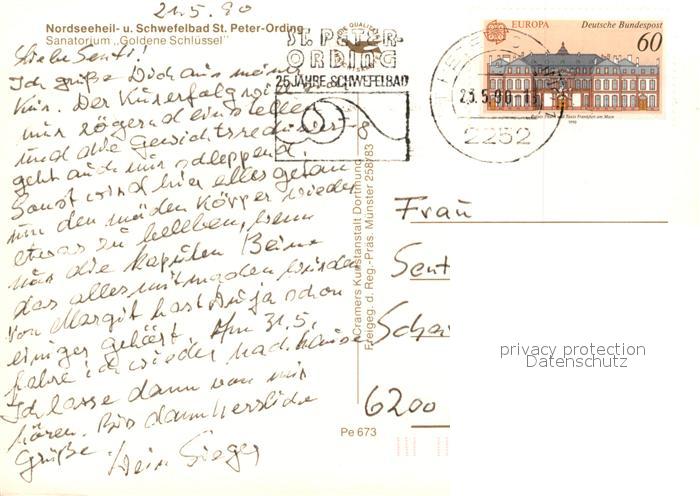 21.5.90
Nordseeheil- u. Schwefelbad St. Peter-Ording
Sanatorium „Goldene Schlüssel"
Liebe Senti!
Ich grüße Dich aus meiner
Kur. Der Kurerfolg will sich
nur zögernd einstellen
und die Gewichtsreduzierung
geht auch nur schleppend.
Sonst wird hier alles getan
um den müden Körper wieder
etwas zu beleben, wenn
nur die kaputten Beine
das alles mitmachen würden
Von Margit hast Du ja schon
einiges gehört. Am 31.5.
fahre ich wieder nach Hause
Ich lasse dann von mir
hören. Bis dann herzliche
Grüße
Hein Sieger
ST. PETER-
ORDING
25 JAHRE SCHWEFELBAD
23.5.90
2252
EUROPA
Deutsche Bundespost
60
Palais Thurn und Taxis Frankfurt am Main
1990
Cramers Kunstanstalt Dortmund
Freigeg. d. Reg.-Präs. Münster 258/83
Frau
Sent
6200
Pe 673
privacy protection
Datenschutz